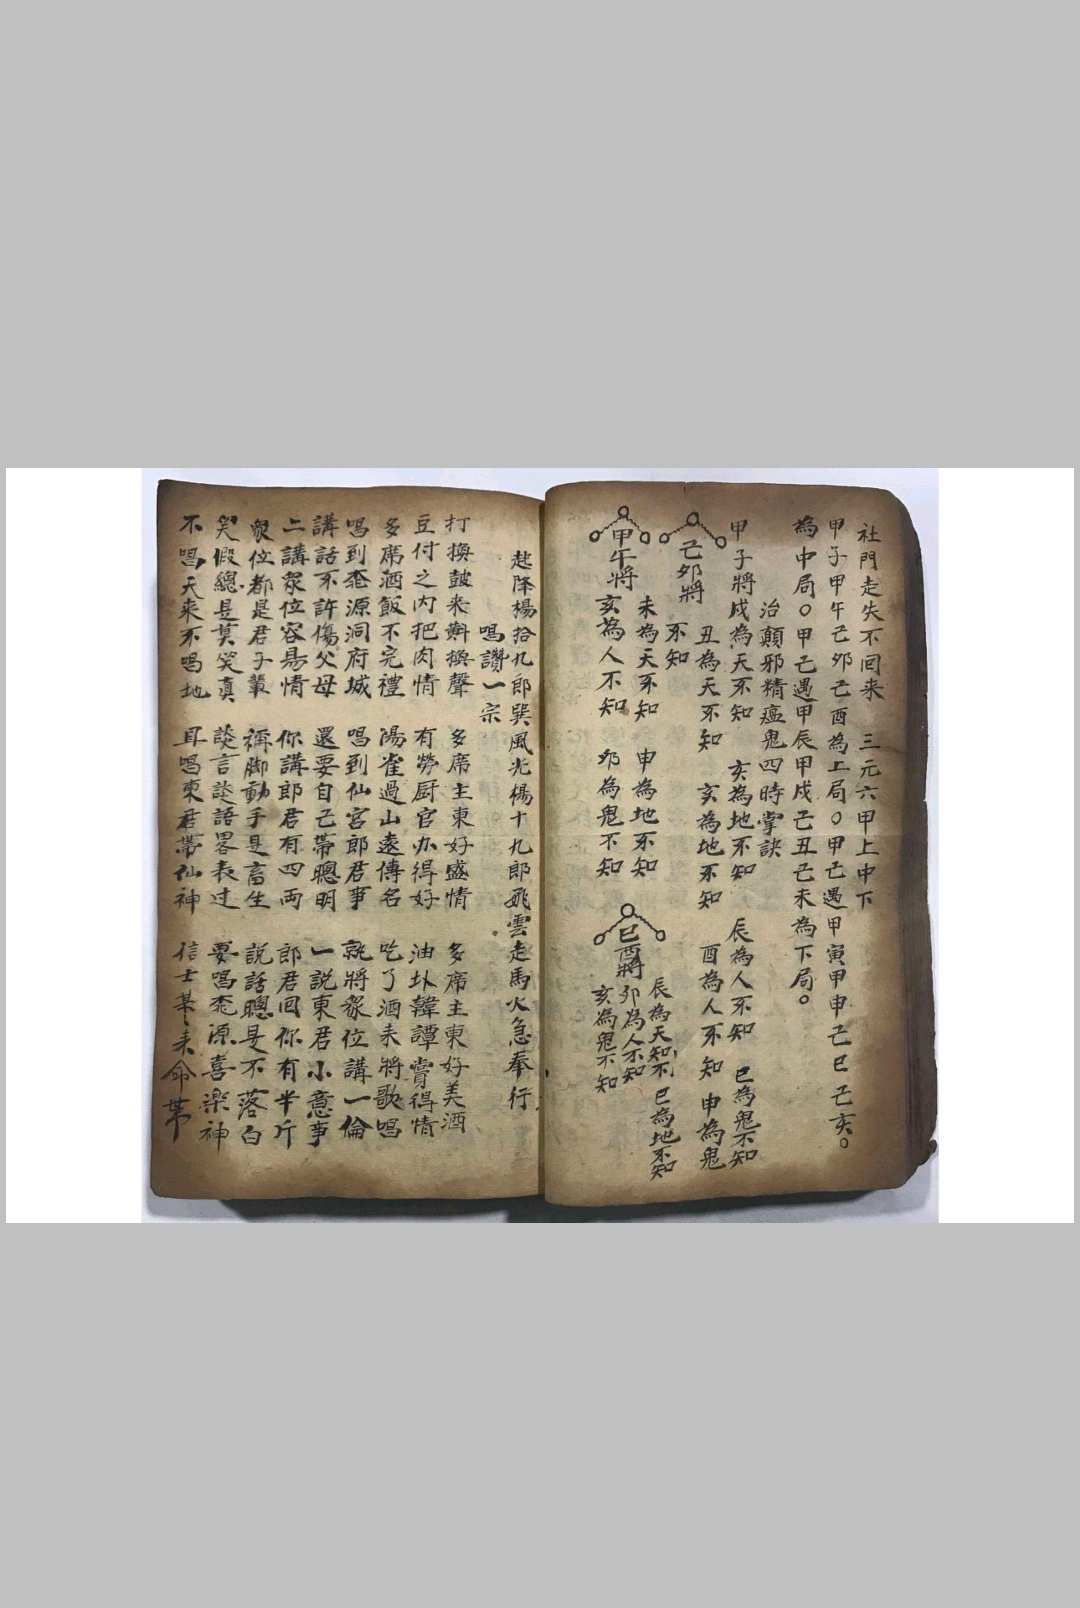 社門走失不回来　三元六甲上中下
甲子甲午己夘己酉為上局〇甲己遇甲寅甲申己巳己亥。
為中局〇甲己遇甲辰甲戍己丑己未為下局。
治顛邪精瘟鬼四時掌訣
甲子將戍為天不知　亥為地不知　辰為人不知　巳為鬼不知
己夘將　丑為天不知　亥為地不知　酉為人不知　申為鬼
不知
甲午將　未為天不知　申為地不知
亥為人不知　夘為鬼不知
巳酉將　辰為天知不　巳為地不知
夘為人不知
亥為鬼不知
赴降楊拾九郎巽風光楊十九郎飛雲走馬火急奉行
唱讚一宗
打換鼓来斢換聲　多席主東好盛情　多席主東好美酒
豆付之内把肉情　有勞厨官办得好　油㘰韓譚賞得情
多席酒飯不完禮　鴻雀過山遠傳名　吃了酒来將歌唱
唱到桃源洞府城　唱到仙宮郎君事　就將衆位講一倫
講話不許傷父母　還要自己帶聰明　一說東君小意事
二講衆位容昜情　你講郎君有四両　郎君回你有半斤
衆位都是君子輩　褥脚動手是畜生　說話聰是不落白
笑假總是莫笑真　談言談語畧表过　要唱桃源喜楽神
不唱天来不唱地　耳唱東君帶仙神　信士某〻来命带